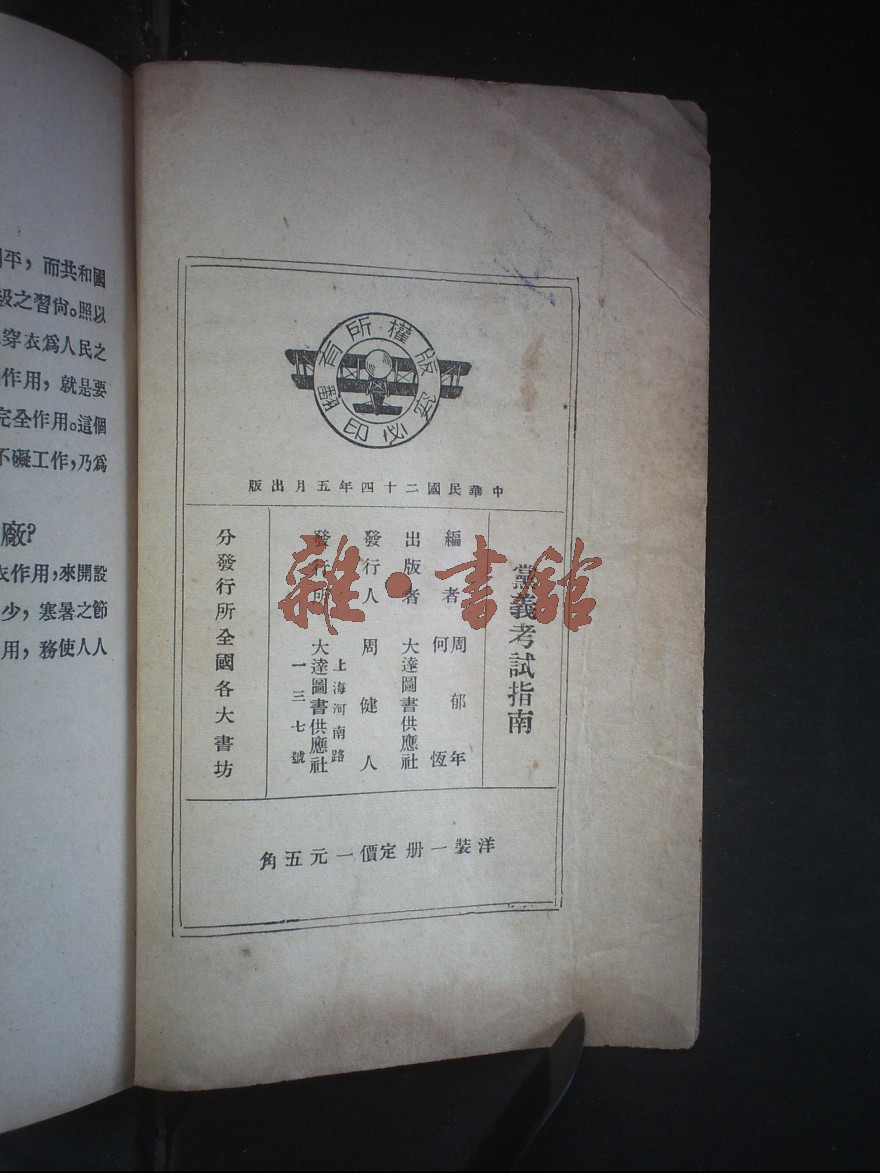 版權所有
翻印必究
中華民國二十四年五月出版
黨義考試指南
編者 周郁年
何恆
出版者 大達圖書供應社
發行人 周健人
發行所 大達圖書供應社
上海河南路
一三七號
分發行所全國各大書坊
洋裝一册定價一元五角
雜·書館
平，而共和國
級之習尙。照以
穿衣爲人民之
作用，就是要
完全作用。這個
不礙工作，乃爲
廠？
衣作用，來開設
少，寒暑之節
用，務使人人